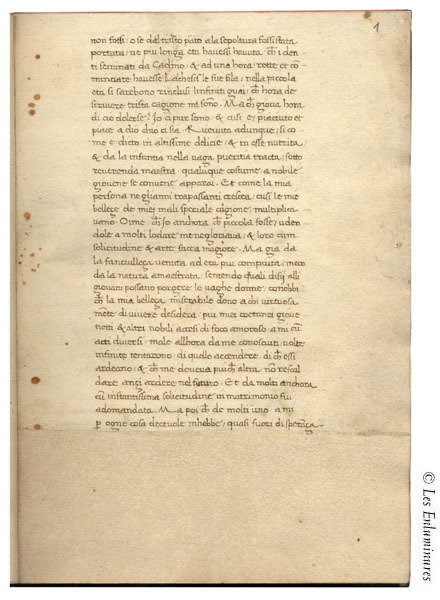 1
non fossi / o se dal tristo parto a la sepoltura fossi stata
portata / ne piu longa eta havessi havuta / cħ i den
ti seminati da Cadmo / & ad una hora / rotte et cō=
minciate havesse Lachesis le sue fila / nella picciola
eta si sarebono rinclusi linfiniti guai / cħ hora de
scrivere trista cagione mi sono. Ma cħ giova hora
di cio dolersi? Io ci pur sono / et cusi e piaciuto et
piace a dio chio ci sia. Ricevuta adunque / si co=
me e dicto in altissime delicie / & in esse nutrita /
& da la infantia nella vaga pueritia tracta / sotto
reverenda maestra / qualunque costume / a nobile
giovene se convene apparai. Et come la mia
persona negli anni trapassanti crescea / cusi le mie
belleçe de miei mali speciale cagione / multiplica=
vano. Oime / cħ io anchora cħ piccola fosse / uden=
dole a molti lodare me ne gloriava / et loro cum
solicitudine & arte facea magiore. Ma gia da
la fanciulleça venuta ad eta piu compiuta / meco
da la natura amaestrata / sentendo quali disii alli
giovani possano porgere le vaghe donne / conobbi
cħ la mia belleça / miserabile dono a chi virtuosa=
mēte di vivere desidera / piu miei coetanei giove=
neti & altri nobili accesi di foco amoroso / a mi cū
acti diversi / male allhora da me conosciuti / volte
infinite tentarono / di quello accendere / di cħ essi
ardeano / & cħ me doveva piu cħ altra / non roscal
dare anci ardere nel futuro. Et da molti anchora
cū instantissima solicitudine in matrimonio fui
adomandata. Ma poi cħ de molti uno / a mi
ꝑ ogne cosa decevole mhebbe / quasi fuori di sperāça
© Les Enluminures